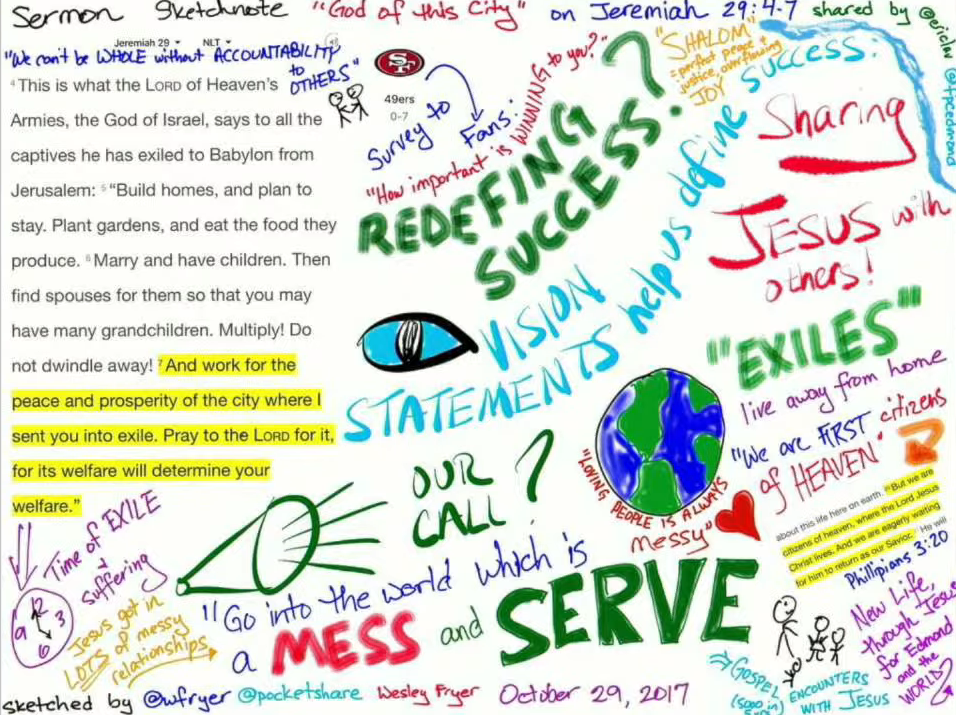 Sermon Sketchnote "God of this City" on Jeremiah 29:4-7 shared by @ericlav
@fpcedmond
"We can't be WHOLE without ACCOUNTABILITY
to
OTHERS"
Jeremiah 29 NLT
4 This is what the LORD of Heaven's
Armies, the God of Israel, says to all the
captives he has exiled to Babylon from
Jerusalem: 5 "Build homes, and plan to
stay. Plant gardens, and eat the food they
produce. 6 Marry and have children. Then
find spouses for them so that you may
have many grandchildren. Multiply! Do
not dwindle away! 7 And work for the
peace and prosperity of the city where I
sent you into exile. Pray to the LORD for it,
for its welfare will determine your
welfare."
SF
49ers
0-7
Survey to
Fans:
"How important is WINNING to you?"
REDEFINING
SUCCESS?
"SHALOM"
= perfect peace +
justice, overflowing
JOY
VISION
STATEMENTS help us define SUCCESS:
Sharing
JESUS with
others!
"EXILES"
live away from home
"We are FIRST citizens
of HEAVEN"
about this life here on earth. 20 But we are
citizens of heaven, where the Lord Jesus
Christ lives. And we are eagerly waiting
for him to return as our Savior. He will
Phillipians 3:20
"LOVING
PEOPLE IS ALWAYS
messy"
OUR
CALL?
"Go into the world which is
a MESS and SERVE
Time of EXILE
+
suffering
12
3
6
9
Jesus got in
LOTS of messy
relationships
New Life,
through Jesus
for Edmond
and the
WORLD
GOSPEL
ENCOUNTERS
with JESUS
sketched by @wfryer @pocketshare Wesley Fryer October 29, 2017